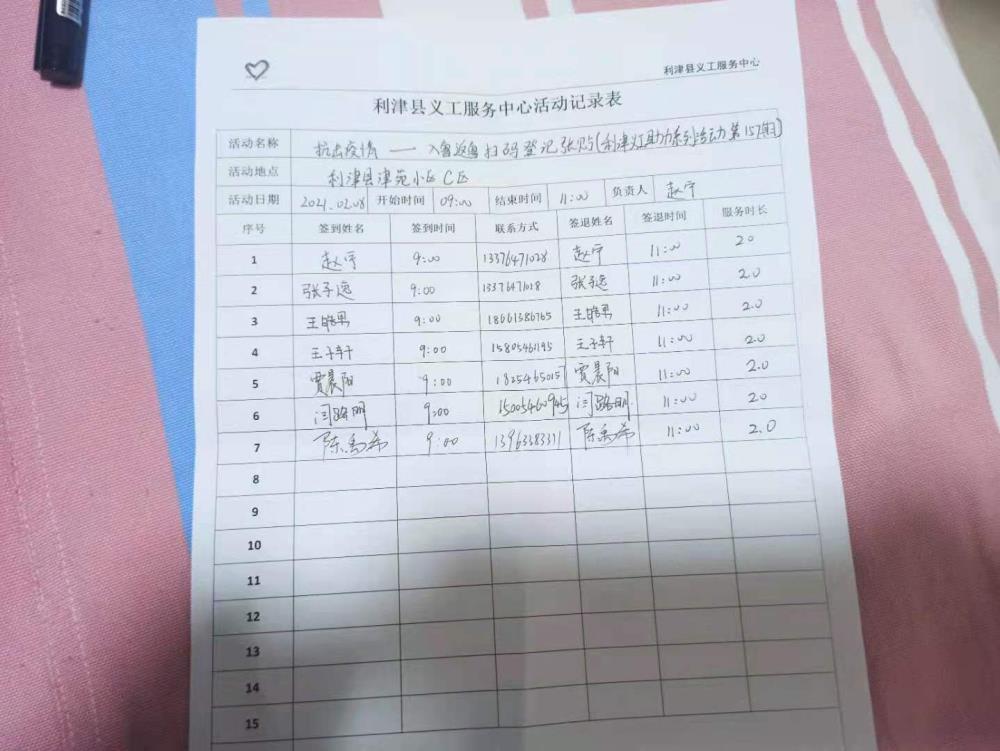 利津县义工服务中心
利津县义工服务中心活动记录表
活动名称 抗击疫情 — 入鲁返鲁扫码登记张贴(利津义工助力系列活动第157期)
活动地点 利津县津苑小区C区
活动日期 2021.02.08 开始时间 09:00 结束时间 11:00 负责人 赵宁
序号 签到姓名 签到时间 联系方式 签退姓名 签退时间 服务时长
1 赵宁 9:00 13376471028 赵宁 11:00 2.0
2 张子逸 9:00 13376471018 张子逸 11:00 2.0
3 王皓男 9:00 18661386765 王皓男 11:00 2.0
4 王子轩 9:00 15805461195 王子轩 11:00 2.0
5 贾晨阳 9:00 18254650157 贾晨阳 11:00 2.0
6 闫路明 9:00 15005460945 闫路明 11:00 2.0
7 陈禹希 9:00 陈禹希 11:00 2.0
8
9
10
11
12
13
14
15